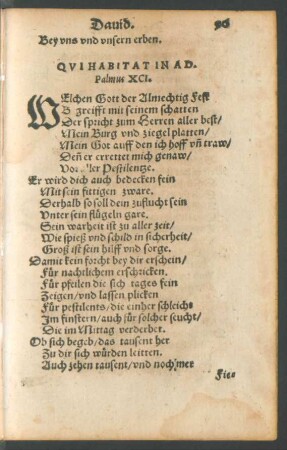 Dauid. 96
Bey vns vnd vnsern erben.
QVI HABITAT IN AD.
Psalmus XCI.
WElchen Gott der Almechtig Fest
Bgreifft mit seinem schatten
Der spricht zum Herren aller best/
Mein Burg vnd ziegel platten/
Mein Got auff den ich hoff vñ traw/
Deñ er errettet mich genaw/
Vor der Pestilentze.
Er wird dich auch bedecken fein
Mit sein fittigen zware.
Derhalb so soll dein zuflucht sein
Vnter sein flügeln gare.
Sein warheit ist zu aller zeit/
Wie spieß vnd schild in sicherheit/
Groß ist sein hilff vnd sorge.
Damit kein forcht bey dir erschein/
Für nachtlichem erschricken.
Für pfeilen die sich tages fein
Zeigen/vnd lassen plicken
Für pestilentz/die einher schleicht
Im finstern/auch für solcher seucht/
Die im Mittag verderbet.
Ob sich begeb/das tausent her
Zu dir sich würden leitten.
Auch zehen tausent/vnd noch mer